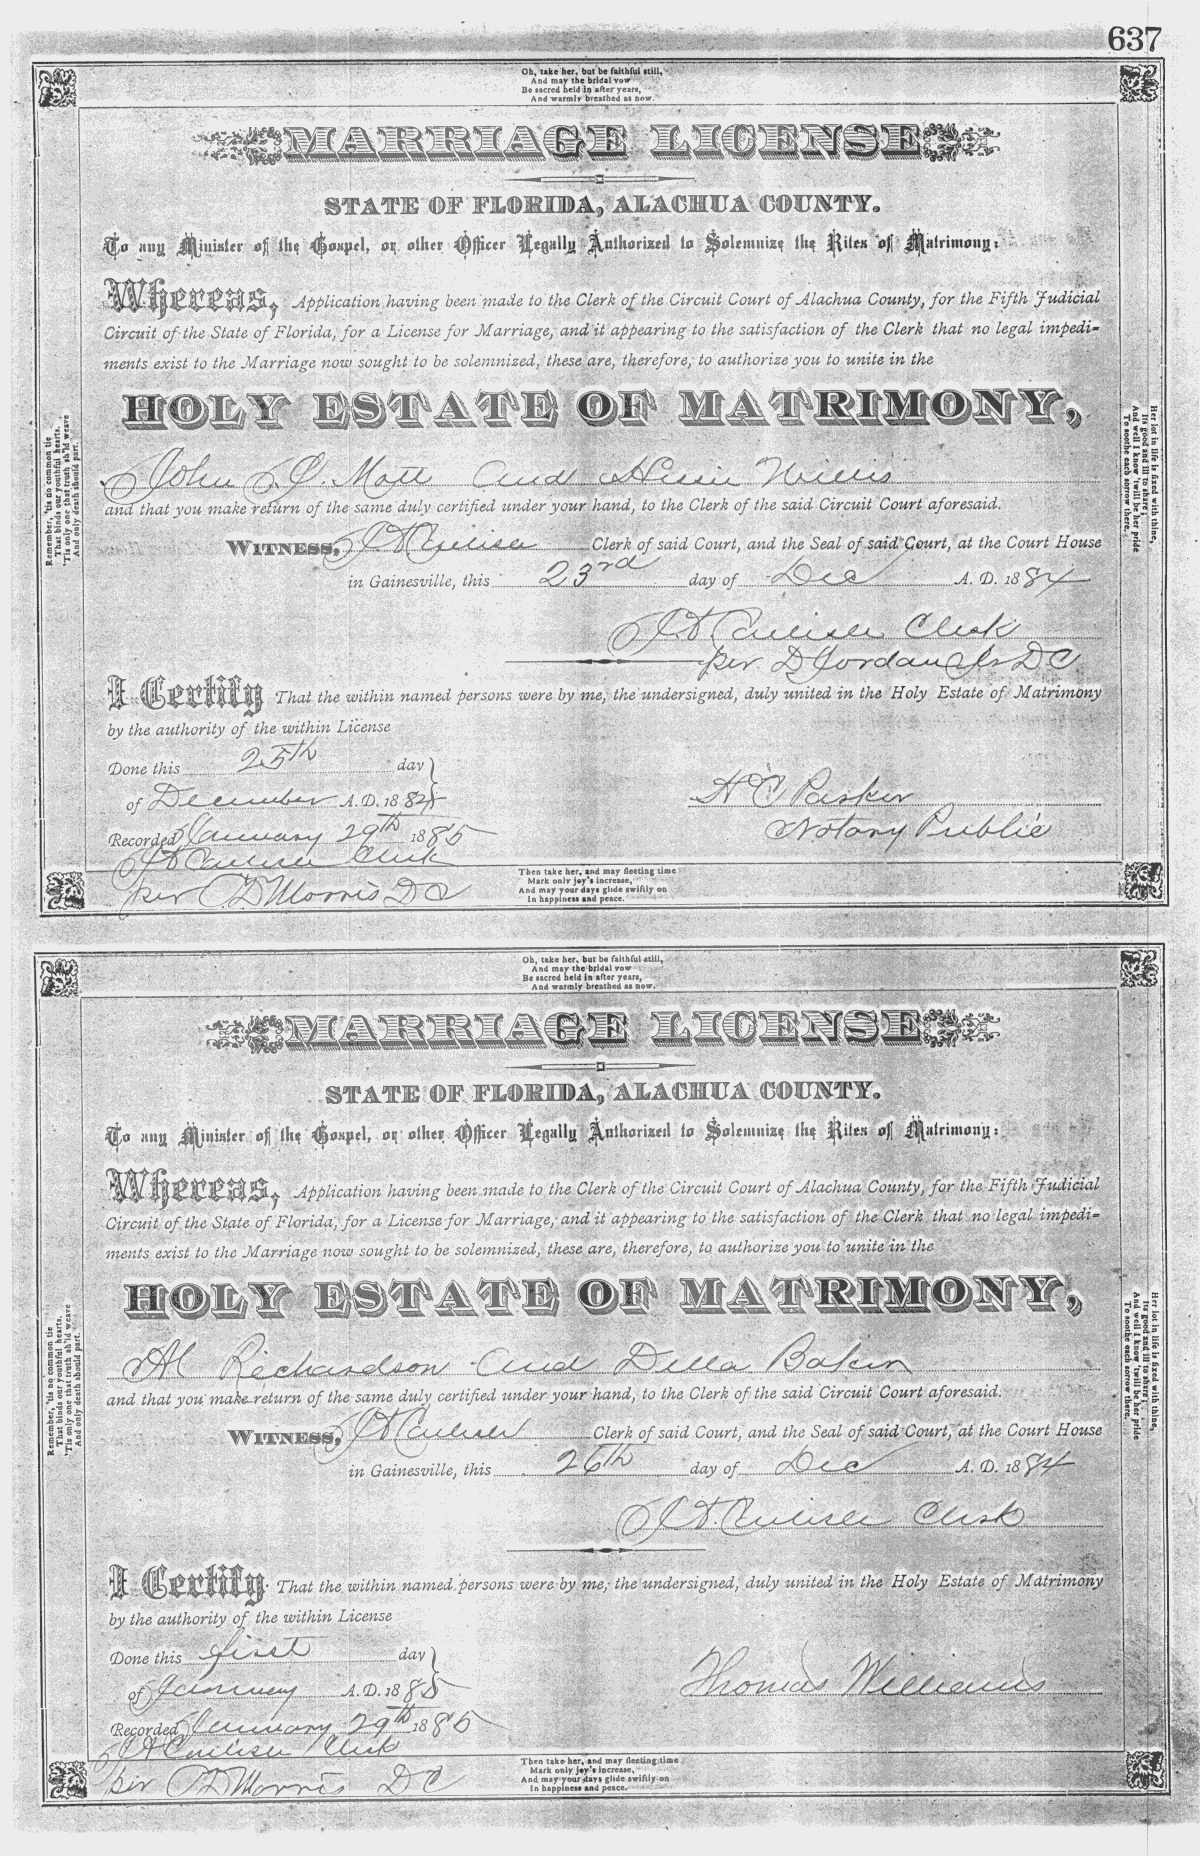 637
Oh, take her, but be faithful still,
And may the bridal vow
Be sacred held in after years,
And warmly breathed as now.
MARRIAGE LICENSE
STATE OF FLORIDA, ALACHUA COUNTY.
To any Minister of the Gospel, or other Officer Legally Authorized to Solemnize the Rites of Matrimony:
Whereas, Application having been made to the Clerk of the Circuit Court of Alachua County, for the Fifth Judicial
Circuit of the State of Florida, for a License for Marriage, and it appearing to the satisfaction of the Clerk that no legal impedi-
ments exist to the Marriage now sought to be solemnized, these are, therefore, to authorize you to unite in the
HOLY ESTATE OF MATRIMONY,
John and Willis
and that you make return of the same duly certified under your hand, to the Clerk of the said Circuit Court aforesaid.
WITNESS, J A Carlisle Clerk of said Court, and the Seal of said Court, at the Court House
in Gainesville, this 23rd day of Dec A. D. 1884
J A Carlisle Clerk
per D Jordan Jr D C
I Certify That the within named persons were by me, the undersigned, duly united in the Holy Estate of Matrimony
by the authority of the within License
Done this 25th day
of December A. D. 1884
H C Parker
Notary Public
Recorded January 29th 1885
J A Carlisle Clerk
per Morris D C
Then take her, and may fleeting time
Mark only joy's increase,
And may your days glide swiftly on
In happiness and peace.
Remember, 'tis no common tie
That binds our youthful hearts,
'Tis only one that truth sh'ld weave
And only death should part.
Her lot in life is fixed with thine,
Its good and ill to share;
And well I know 'twill be her pride
To soothe each sorrow there.
Oh, take her, but be faithful still,
And may the bridal vow
Be sacred held in after years,
And warmly breathed as now.
MARRIAGE LICENSE
STATE OF FLORIDA, ALACHUA COUNTY.
To any Minister of the Gospel, or other Officer Legally Authorized to Solemnize the Rites of Matrimony:
Whereas, Application having been made to the Clerk of the Circuit Court of Alachua County, for the Fifth Judicial
Circuit of the State of Florida, for a License for Marriage, and it appearing to the satisfaction of the Clerk that no legal impedi-
ments exist to the Marriage now sought to be solemnized, these are, therefore, to authorize you to unite in the
HOLY ESTATE OF MATRIMONY,
Richardson and Della Baker
and that you make return of the same duly certified under your hand, to the Clerk of the said Circuit Court aforesaid.
WITNESS, J A Carlisle Clerk of said Court, and the Seal of said Court, at the Court House
in Gainesville, this 26th day of Dec A. D. 1884
J A Carlisle Clerk
I Certify That the within named persons were by me, the undersigned, duly united in the Holy Estate of Matrimony
by the authority of the within License
Done this first day
of January A. D. 1885
Thomas Williams
Recorded January 29th 1885
J A Carlisle Clerk
per Morris D C
Then take her, and may fleeting time
Mark only joy's increase,
And may your days glide swiftly on
In happiness and peace.
Remember, 'tis no common tie
That binds our youthful hearts,
'Tis only one that truth sh'ld weave
And only death should part.
Her lot in life is fixed with thine,
Its good and ill to share;
And well I know 'twill be her pride
To soothe each sorrow there.